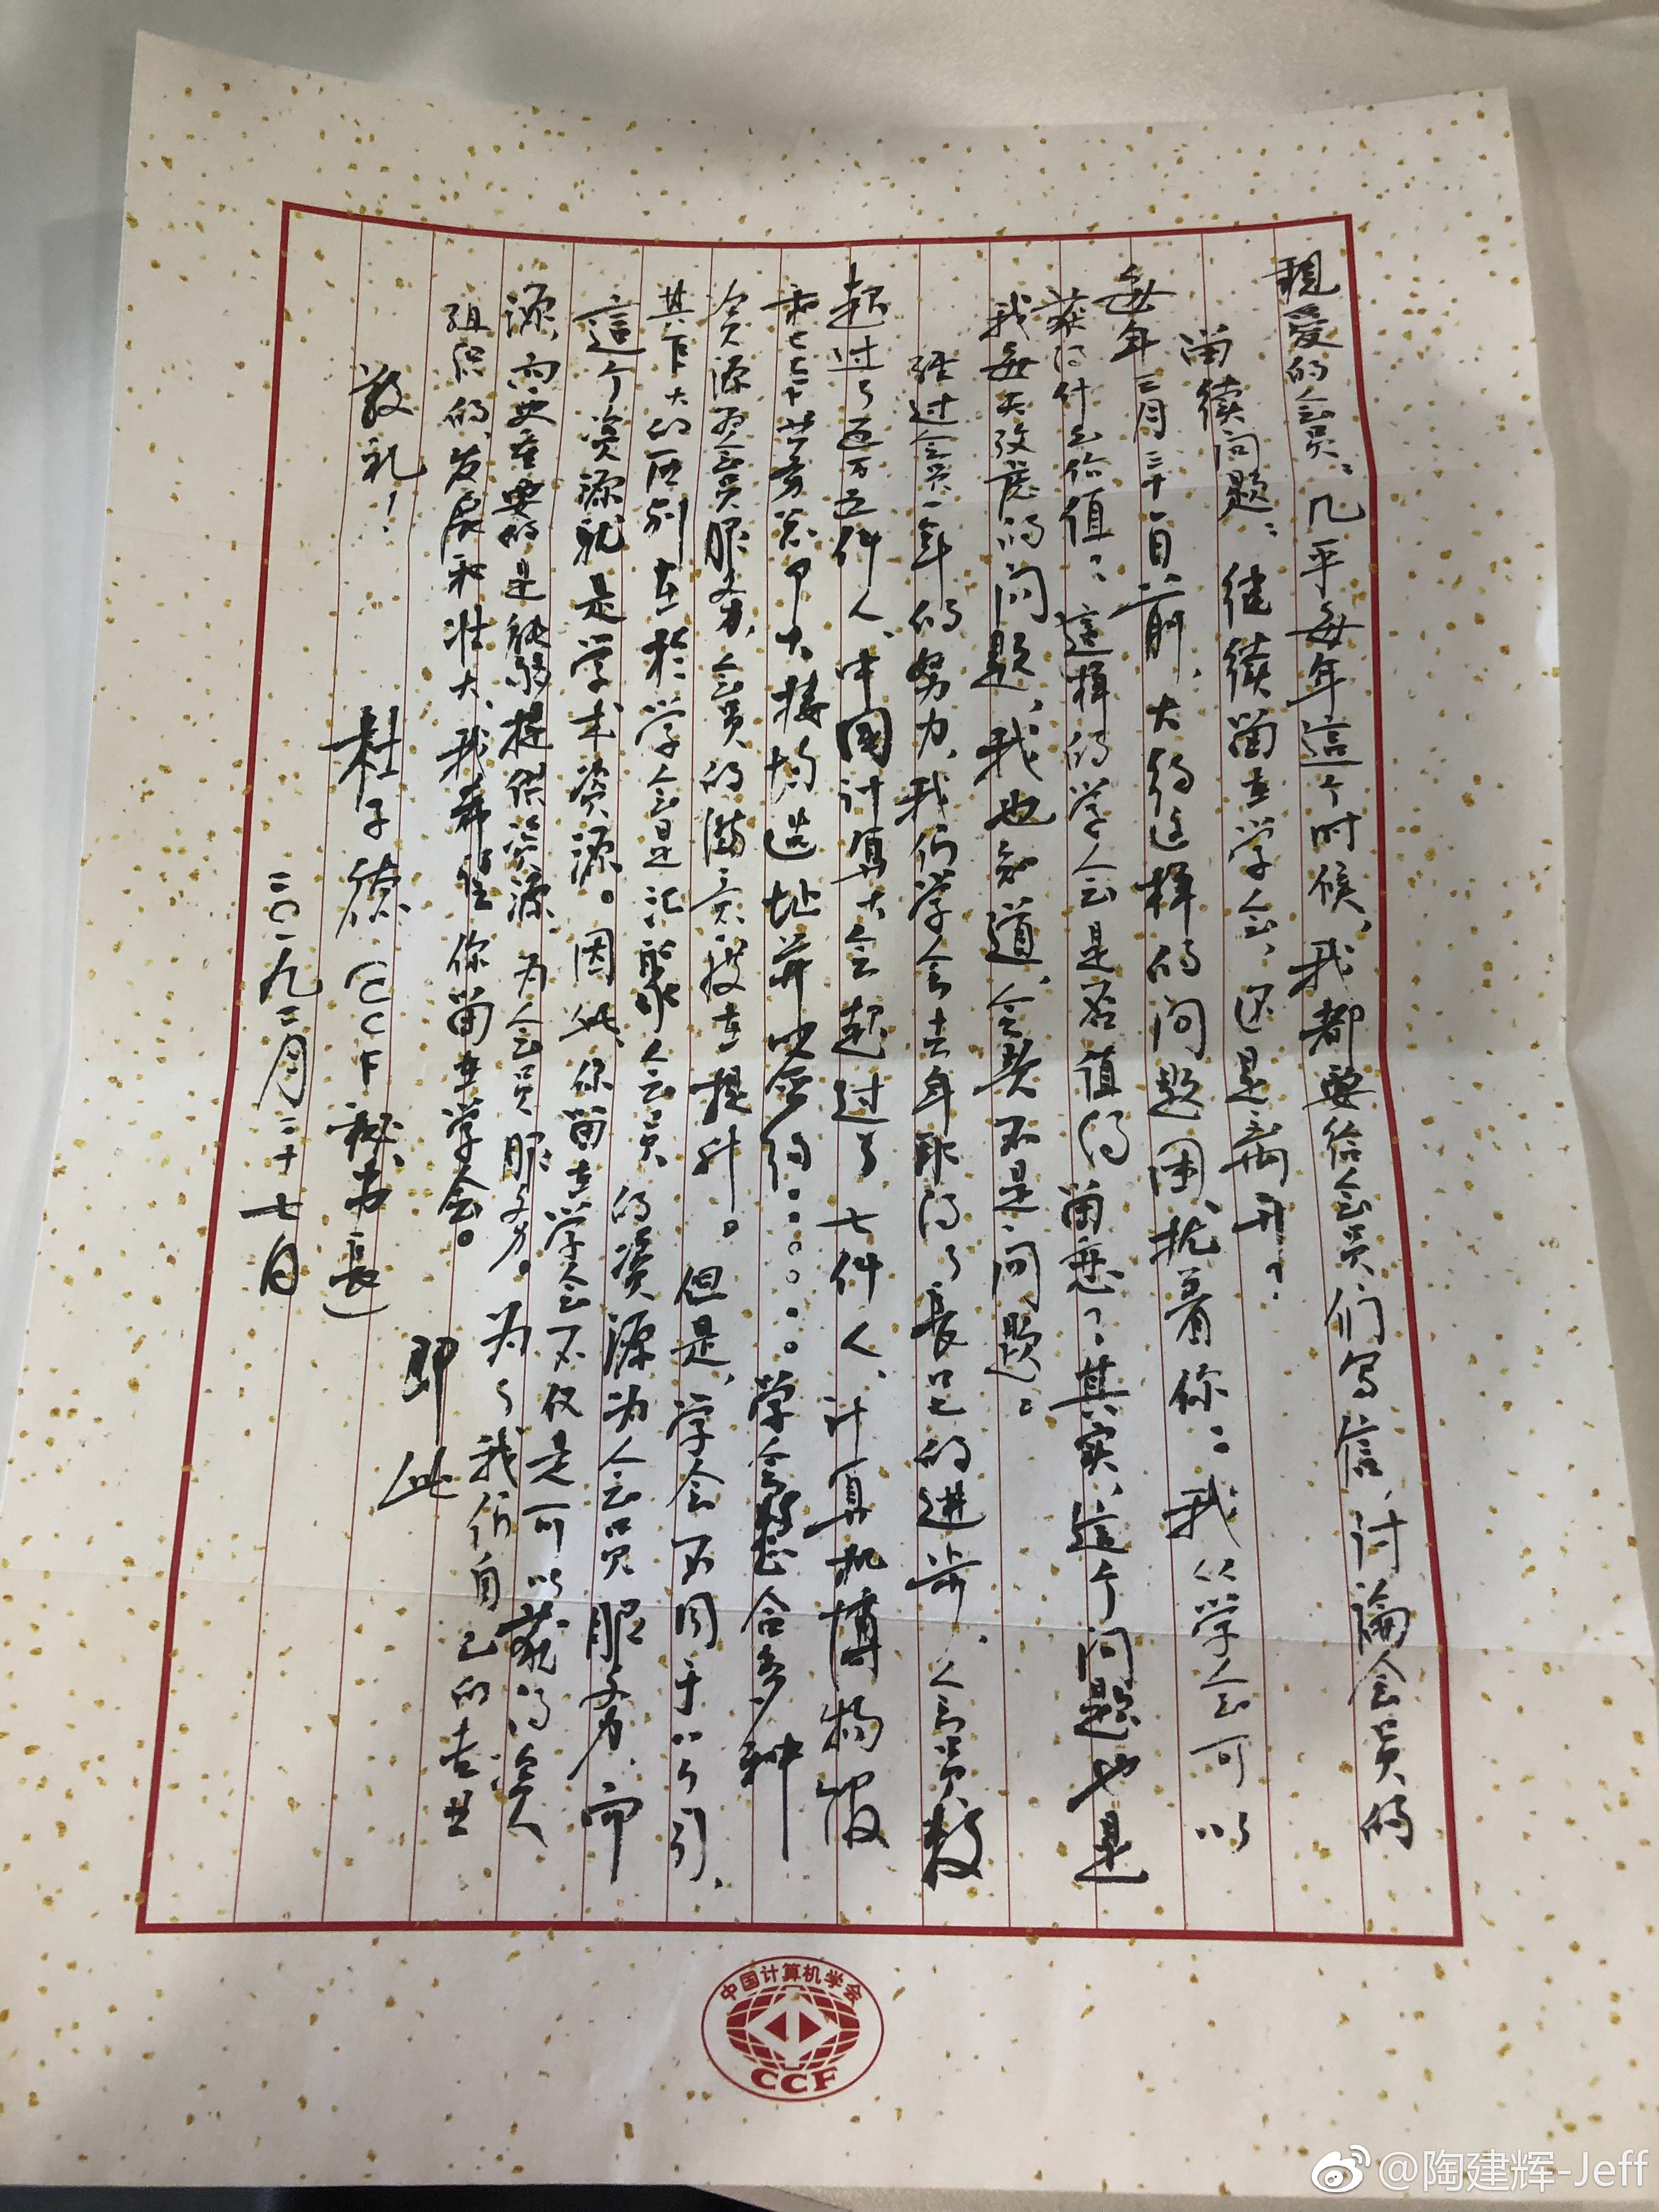 親爱的会员：几乎每年這个时候，我都要给会员们写信，讨論会员的
留续问题：继续留在学会，还是离开？
每年三月三十一日前，大约这样的问题困扰着你：我从学会可以
获得什么价值？這样的学会是否值得留恋？其实，這个问题也是
我每天考虑的问题，我也知道，会费不是问题。
经过会员一年的努力，我们学会去年取得了長足的进步，会员数
超过了五万五仟人，中国计算机大会超过了七仟人，计算机博物馆
和CCF业务总部大楼均选址并已签约。。。。。。学会整合多种
资源为会员服务，会员的满意度在提升。但是，学会不同于公司，
其最大的区别在於学会是汇聚会员的资源为会员服务，而
這个资源就是学术资源。因此，你留在学会不仅是可以获得资
源，而更重要的是能够提供资源，为会员服务。为了我们自己的专业
组织的发展和壮大，我希望你留在学会。
即此
敬礼！
杜子德（CCF秘书長）
二〇一九年三月二十七日
中国计算机学会
CCF
@陶建辉-Jeff